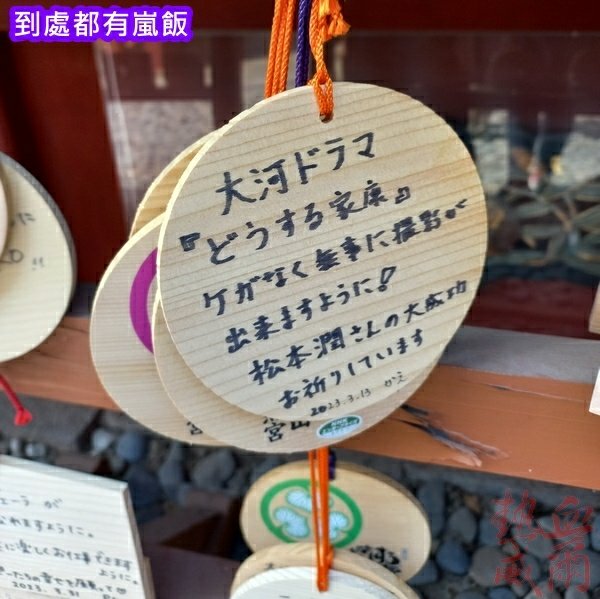 到處都有嵐飯
大河ドラマ
『どうする家康』
ケガなく無事に撮影が
出来ますように!
松本潤さんの大成功
お祈りしています
2023.3.13 かえ
宮山
ェーラ が
ように。
に楽しくお仕事できます
ように。
2023. 3. 31
熱血
風雨